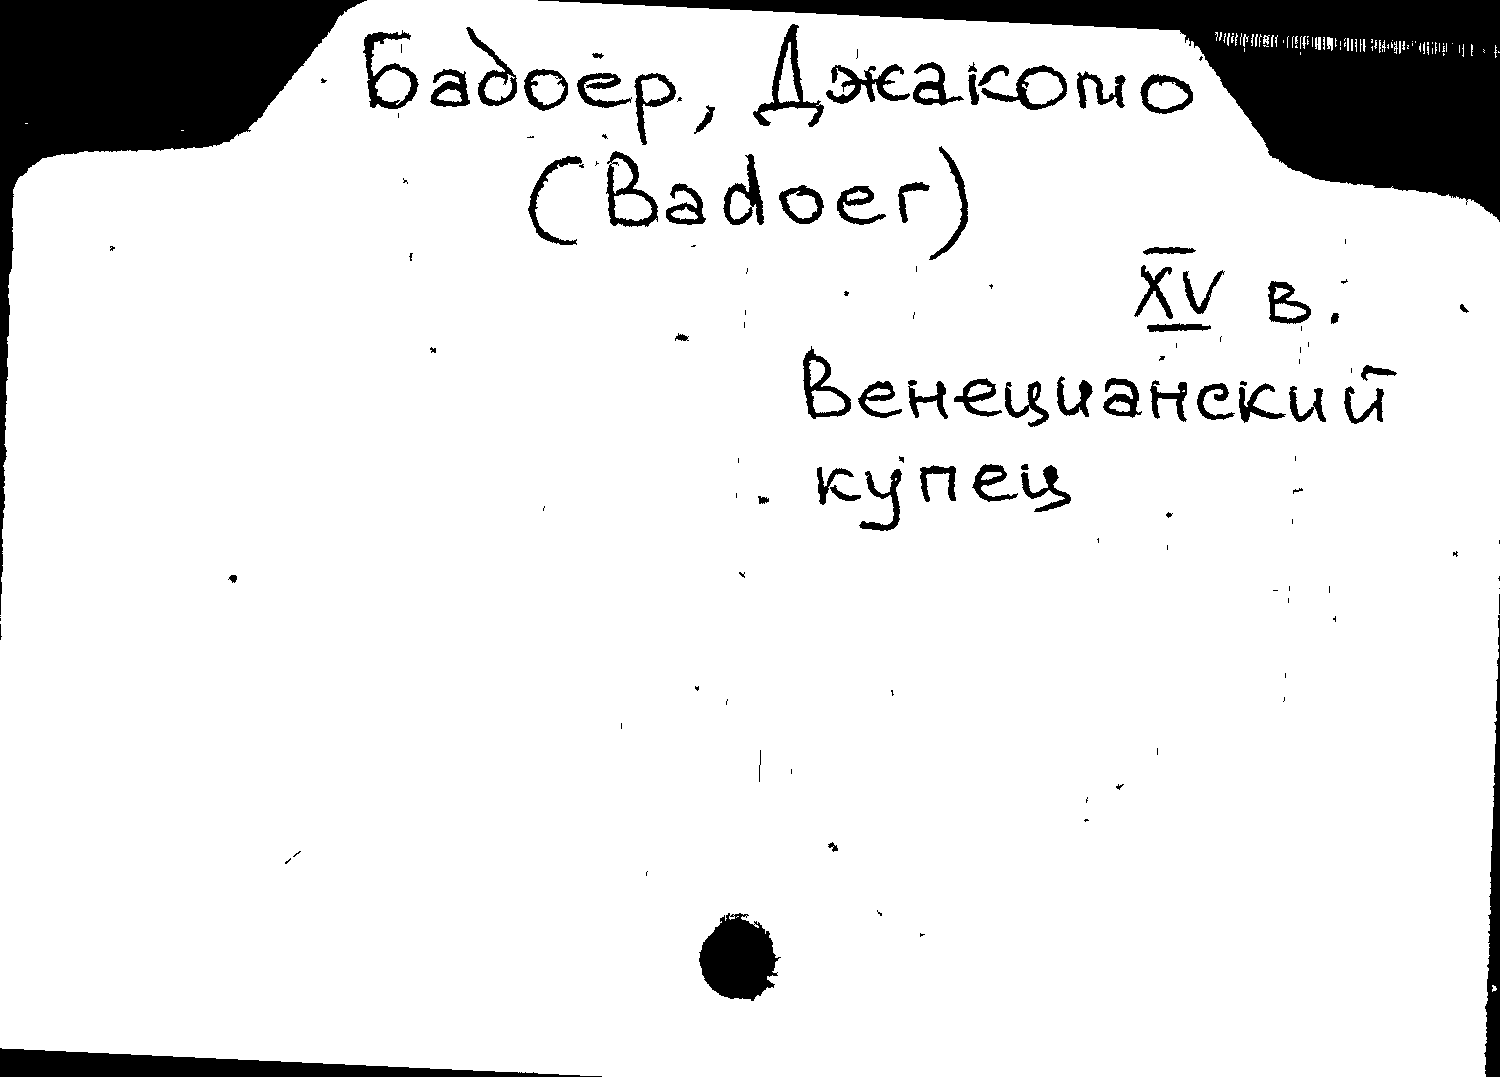 Бадоёр, Джакомо
(Badoer)
XV в.
Венецианский
купец